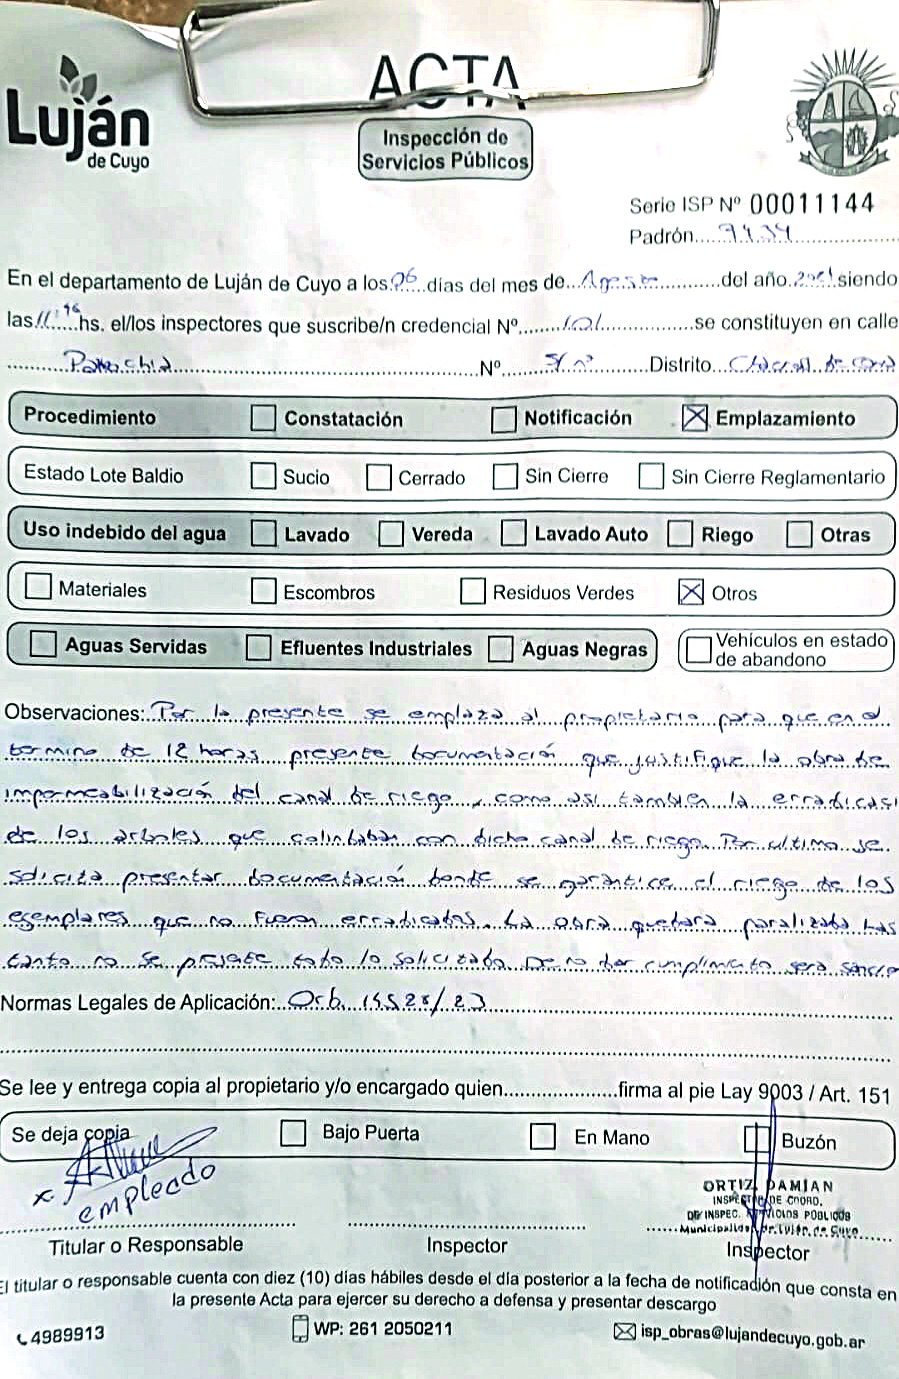 Luján
de Cuyo
ACTA
Inspección de
Servicios Públicos
Serie ISP Nº 00011144
Padrón
En el departamento de Luján de Cuyo a los 06 días del mes de Agosto del año siendo
las 11:46 hs. el/los inspectores que suscribe/n credencial Nº 101 se constituyen en calle
Nº S/nº Distrito Chacras de Coria
Procedimiento Constatación Notificación Emplazamiento
Estado Lote Baldio Sucio Cerrado Sin Cierre Sin Cierre Reglamentario
Uso indebido del agua Lavado Vereda Lavado Auto Riego Otras
Materiales Escombros Residuos Verdes Otros
Aguas Servidas Efluentes Industriales Aguas Negras Vehículos en estado
de abandono
Observaciones: Por la presente se emplaza al propietario para que en el
termino de 12 horas presente documentación que justifique la obra de
impermeabilización del canal de riego, como asi tambien la erradicasi
de los arboles que colindaban con dicho canal de riego. Por ultimo se
solicita presentar documentación donde se garantice el riego de los
esemplares que no fueron erradicados. La obra quedara paralizada has
tanto no se presente todo lo solicitado. De no dar cumplimiento sera
Normas Legales de Aplicación: Ord. 15528/23
Se lee y entrega copia al propietario y/o encargado quien firma al pie Lay 9003 / Art. 151
Se deja copia Bajo Puerta En Mano Buzón
x.
empleado
ORTIZ DAMIAN
INSPECTOR DE COORD.
DE INSPEC. SERVICIOS PÚBLICOS
Municipalidad de Luján de Cuyo
Titular o Responsable Inspector Inspector
El titular o responsable cuenta con diez (10) días hábiles desde el día posterior a la fecha de notificación que consta en
la presente Acta para ejercer su derecho a defensa y presentar descargo
4989913 WP: 261 2050211 isp_obras@lujandecuyo.gob.ar